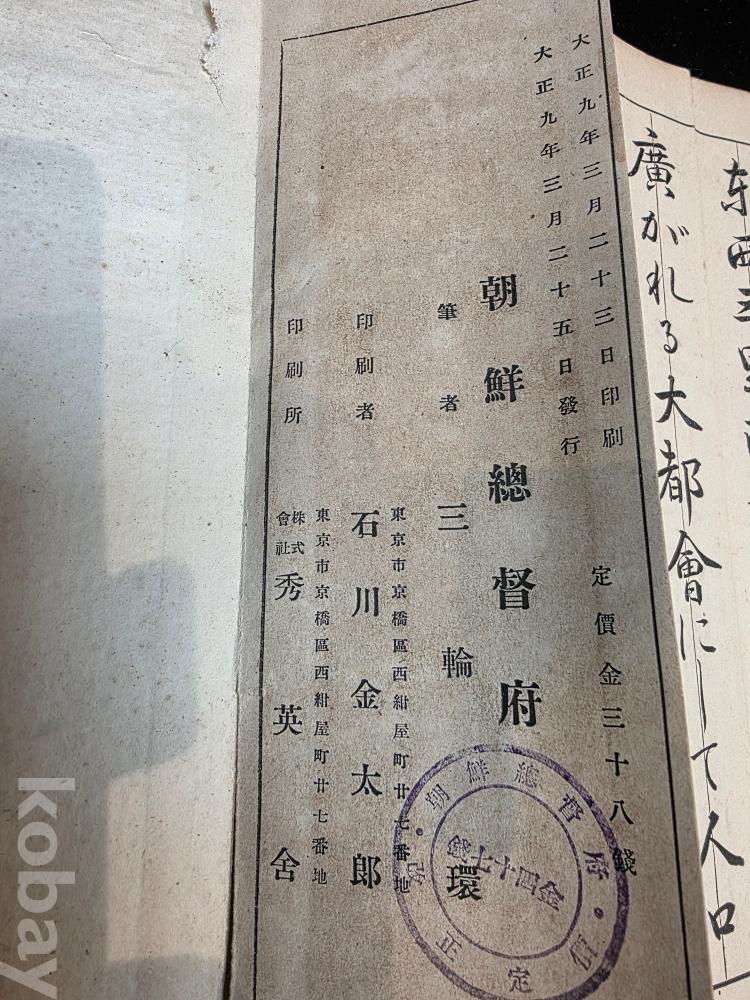 东西五
廣がれる大都會にして人口
大正九年三月二十三日印刷
定價金三十八錢
大正九年三月二十五日發行
朝鮮總督府
筆者 三輪環
東京市京橋區西紺屋町廿七番地
印刷者 石川金太郎
東京市京橋區西紺屋町廿七番地
印刷所 株式會社秀英舍
朝鮮總督府
改正定價
金四十七錢
kobay